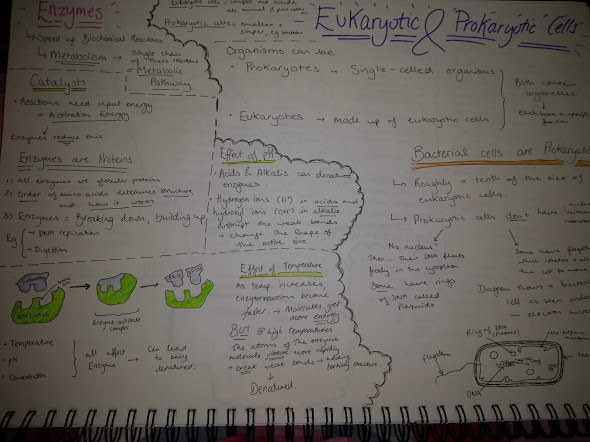 Enzymes
↳ Speed up Biochemical Reactions
↳ Metabolism → Single chain
of these reactions
= Metabolic
Pathway
Catalysts
• Reactions need input energy
= Activation Energy
Enzymes reduce this
Enzymes are Proteins
1) All enzymes are globular proteins
2) Order of amino acids determines structure
and how it works
3) Enzymes = Breaking down, building up
Eg → DNA replication
→ Digestion
Enzyme-substrate
complex
• Temperature
• pH
• Concentration
all affect
Enzyme
→ Can lead to
being
denatured.
Eukaryotic cells = complex and include
all animal & plant cells
Prokaryotic cells = smaller &
simpler, eg bacteria
Effect of pH
• Acids & Alkalis can denature
enzymes
• Hydrogen ions (H⁺) in acids and
hydroxyl ions (OH⁻) in alkalis
disrupt the weak bonds
→ change the shape of
the active site
Effect of Temperature
As temp. increases,
enzyme reactions become
faster → Molecules got
more energy
BUT @ high temperatures
the atoms of the enzyme
molecule vibrate more rapidly
→ break weak bonds → holding
tertiary structure
Denatured.
Eukaryotic & Prokaryotic Cells
Organisms can be
• Prokaryotes → Single-celled organisms
• Eukaryotes → made up of eukaryotic cells
Both contain
organelles
each have a specific
function
Bacterial cells are Prokaryotic
↳ Roughly a tenth of the size of
eukaryotic cells.
↳ Prokaryotic cells don't have
No nucleus?
Then... Their DNA floats
freely in the cytoplasm
Some have rings
of DNA called
Plasmids
Some have flagellum
which rotates &
the cell to move
Diagram shows a bacterial
cell as seen under
electron micro
Ring of DNA
(Plasmid)
Flagellum
DNA